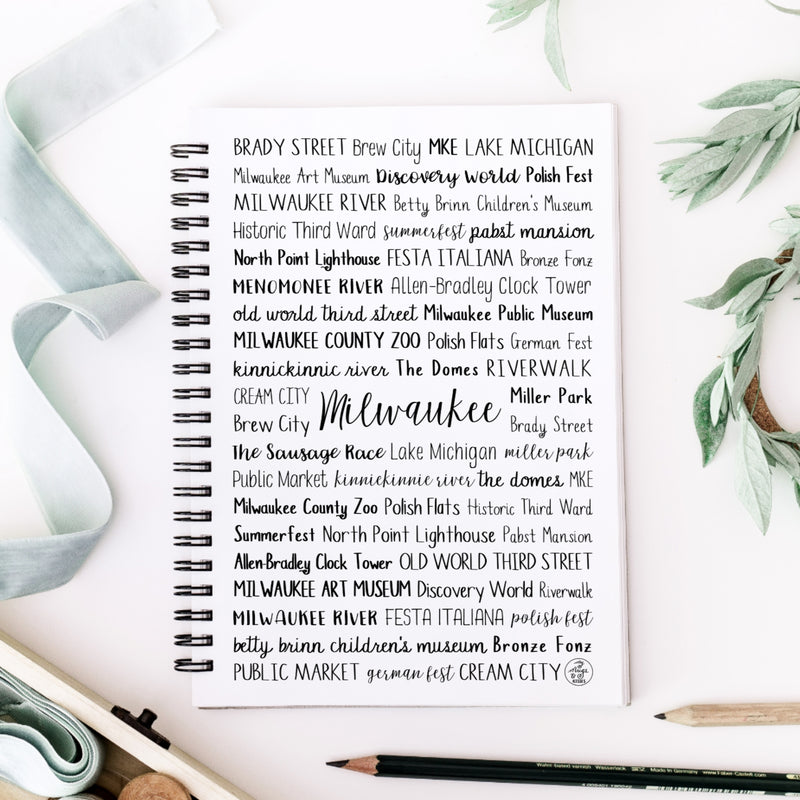 BRADY STREET Brew City MKE LAKE MICHIGAN
Milwaukee Art Museum Discovery World Polish Fest
MILWAUKEE RIVER Betty Brinn Children's Museum
Historic Third Ward summerfest pabst mansion
North Point Lighthouse FESTA ITALIANA Bronze Fonz
MENOMONEE RIVER Allen-Bradley Clock Tower
old world third street Milwaukee Public Museum
MILWAUKEE COUNTY ZOO Polish Flats German Fest
kinnickinnic river The Domes RIVERWALK
CREAM CITY Milwaukee Miller Park
Brew City Brady Street
The Sausage Race Lake Michigan miller park
Public Market kinnickinnic river the domes MKE
Milwaukee County Zoo Polish Flats Historic Third Ward
Summerfest North Point Lighthouse Pabst Mansion
Allen-Bradley Clock Tower OLD WORLD THIRD STREET
MILWAUKEE ART MUSEUM Discovery World Riverwalk
MILWAUKEE RIVER FESTA ITALIANA polish fest
betty brinn children's museum Bronze Fonz
PUBLIC MARKET german fest CREAM CITY
Made in Germany www.Faber-Castell.com